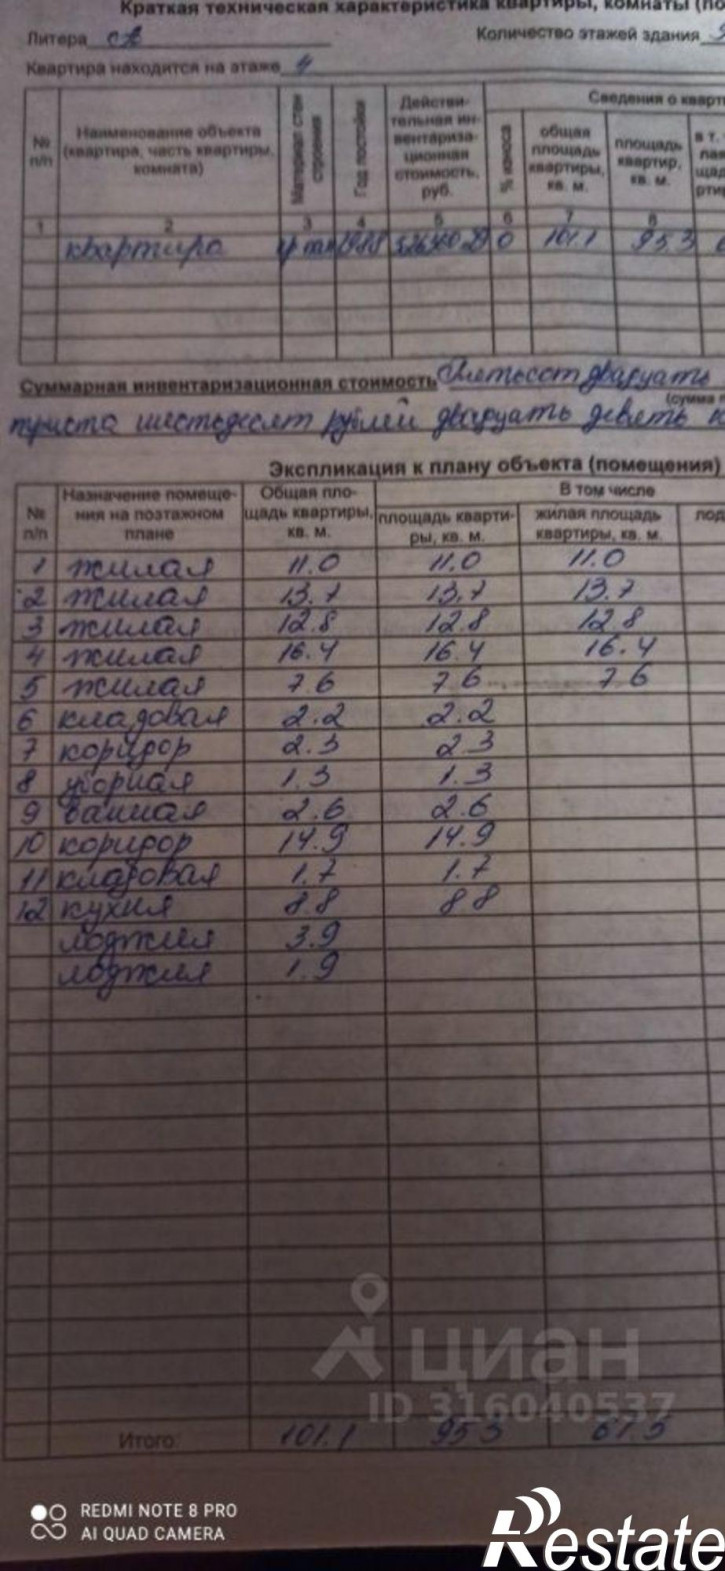 Краткая техническая характеристика квартиры, комнаты (по
Литера
Количество этажей здания
Квартира находится на этаже 4
№ п/п
Наименование объекта (квартира, часть квартиры, комната)
Материал стен строения
Год постойки
Действительная инвентаризационная стоимость, руб.
Сведения о кварти
% износа
общая площадь квартиры, кв. м.
площадь квартир, кв. м.
в т.
1 2 3 4 5 6 7 8
квартира 1988 526360.29 0 101.1 95.3
Суммарная инвентаризационная стоимость Пятьсот двадцать
(сумма п
триста шестьдесят рублей двадцать девять к
Экспликация к плану объекта (помещения)
№ п/п
Назначение помещения на поэтажном плане
Общая площадь квартиры, кв. м.
В том числе
площадь квартиры, кв. м.
жилая площадь квартиры, кв. м.
лод
1 жилая 11.0 11.0 11.0
2 жилая 13.7 13.7 13.7
3 жилая 12.8 12.8 12.8
4 жилая 16.4 16.4 16.4
5 жилая 7.6 7.6 7.6
6 кладовая 2.2 2.2
7 коридор 2.3 2.3
8 уборная 1.3 1.3
9 ванная 2.6 2.6
10 коридор 14.9 14.9
11 кладовая 1.7 1.7
12 кухня 8.8 8.8
лоджия 3.9
лоджия 1.9
циан
ID 316040537
Итого: 101.1 95.3 61.5
REDMI NOTE 8 PRO
AI QUAD CAMERA
Restate